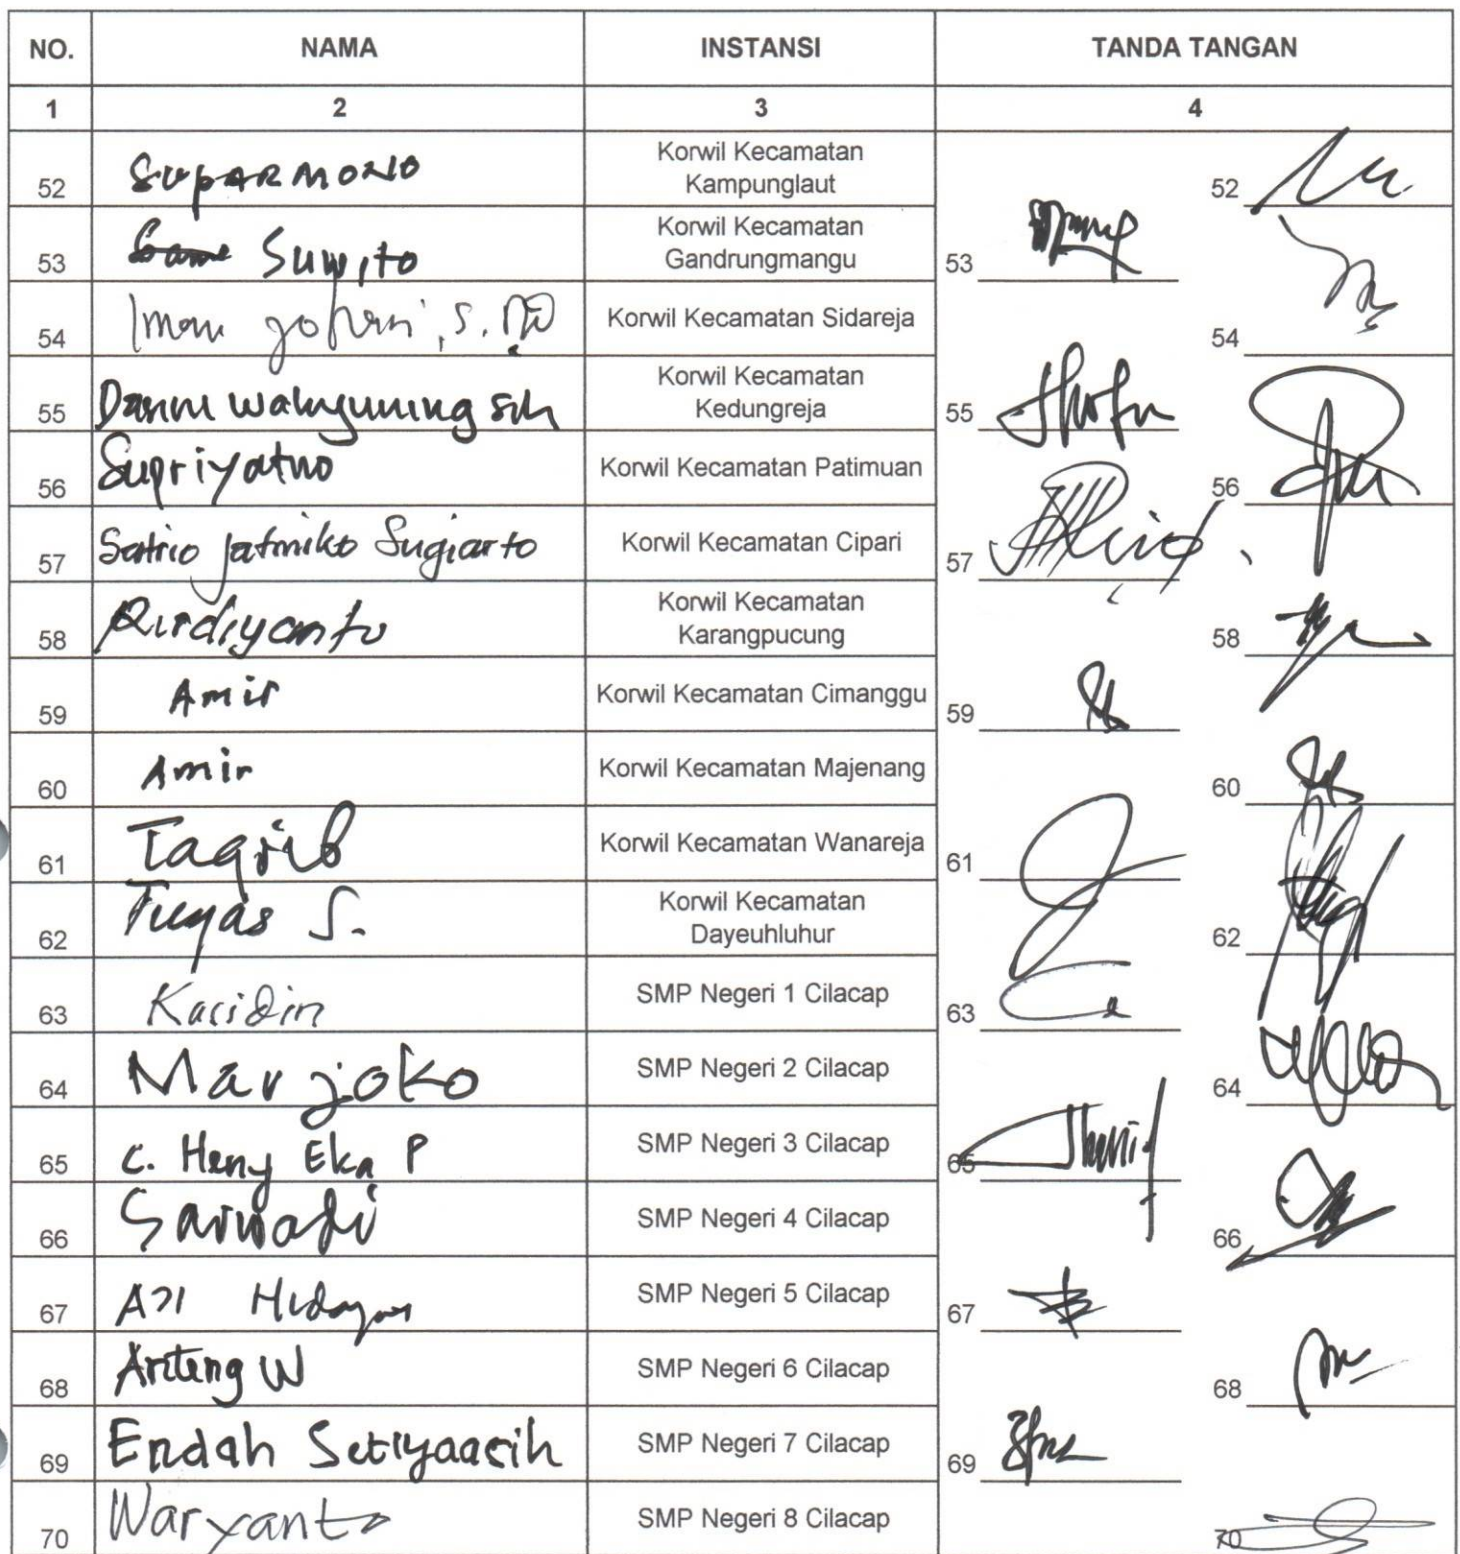 NO. NAMA INSTANSI TANDA TANGAN
1 2 3 4
52 SUPARMONO Korwil Kecamatan Kampunglaut 52
53 Suwito Korwil Kecamatan Gandrungmangu 53
54 Iman S. Pd Korwil Kecamatan Sidareja 54
55 Danni Wahyuning sih Korwil Kecamatan Kedungreja 55
56 Supriyatno Korwil Kecamatan Patimuan 56
57 Satrio Jatmiko Sugiarto Korwil Kecamatan Cipari 57
58 Rusdiyanto Korwil Kecamatan Karangpucung 58
59 Amir Korwil Kecamatan Cimanggu 59
60 Amir Korwil Kecamatan Majenang 60
61 Taqrib Korwil Kecamatan Wanareja 61
62 S. Korwil Kecamatan Dayeuhluhur 62
63 Kasidin SMP Negeri 1 Cilacap 63
64 Marjoko SMP Negeri 2 Cilacap 64
65 C. Heny Eka P SMP Negeri 3 Cilacap 65
66 Sarwadi SMP Negeri 4 Cilacap 66
67 Hidayat SMP Negeri 5 Cilacap 67
68 Anteng W SMP Negeri 6 Cilacap 68
69 Endah Setiyaasih SMP Negeri 7 Cilacap 69
70 Waryanto SMP Negeri 8 Cilacap 70